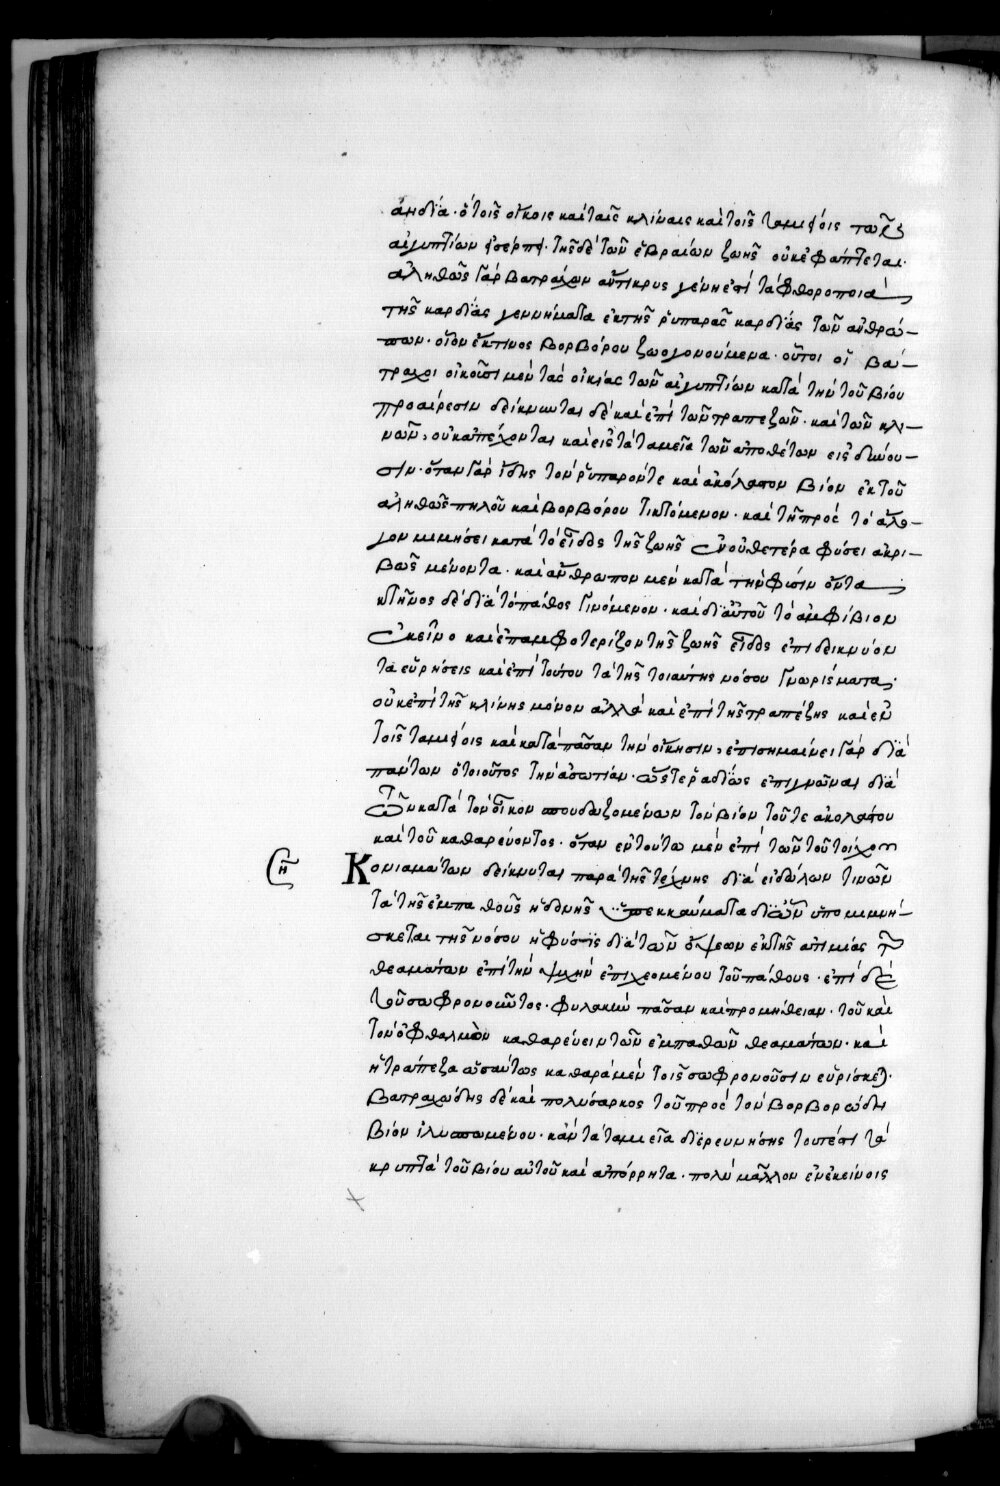 ἀηδία · ὁ τοῖς οἴκοις καὶ ταῖς κλίναις καὶ τοῖς ταμείοις τῶν
αἰγυπτίων εἰσέρπει · τῆς δὲ τῶν ἑβραίων ζωῆς οὐκ ἐφάπτεται·
ἀληθῶς γὰρ βατράχων ἄντικρυς γένη ἐστὶ τὰ φθοροποιὰ
τῆς καρδίας γεννήματα ἐκ τῆς ῥυπαρᾶς καρδίας τῶν ἀνθρώ-
πων · οἷον ἔκ τινος βορβόρου ζωογονούμενα · οὗτοι οἱ βά-
τραχοι οἰκοῦσι μὲν τὰς οἰκίας τῶν αἰγυπτίων κατὰ τὴν τοῦ βίου
προαίρεσιν δείκνυνται δὲ καὶ ἐπὶ τῶν τραπεζῶν · καὶ τῶν κλι-
νῶν, οὐκ ἀπέχονται καὶ εἰς τὰ ταμεῖα τῶν ἀποθέτων εἰσδύου-
σιν · ὅταν γὰρ ἴδῃς τὸν ῥυπαρόν τε καὶ ἀκόλαστον βίον ἐκ τοῦ
ἀληθῶς πηλοῦ καὶ βορβόρου τικτόμενον · καὶ τῇ πρὸς τὸ ἄλο-
γον μιμήσει κατὰ τὸ εἶδος τῆς ζωῆς ἐν οὐθετέρα φύσει ἀκρι-
βῶς μένοντα · καὶ ἄνθρωπον μὲν κατὰ τὴν φύσιν ὄντα
κτῆνος δὲ διὰ τὸ πάθος γινόμενον · καὶ δι αὐτοῦ τὸ ἀμφίβιον
ἐκεῖνο καὶ ἐπαμφοτερίζον τῆς ζωῆς εἶδος ἐπιδεικνύον
τα εὑρήσεις καὶ ἐπὶ τούτου τὰ τῆς τοιαύτης νόσου γνωρίσματα·
οὐκ ἐπὶ τῆς κλίνης μόνον ἀλλὰ καὶ ἐπὶ τῆς τραπέζης καὶ ἐν
τοῖς ταμείοις καὶ κατὰ πᾶσαν τὴν οἴκησιν, ἐπισημαίνει γὰρ διὰ
πάντων ὁ τοιοῦτος τὴν ἀσωτίαν · ὥστε ῥᾳδίως ἐπιγνῶναι διὰ
τῶν κατὰ τὸν οἶκον σπουδαζομένων τὸν βίον τοῦ τε ἀκολάστου
καὶ τοῦ καθαρεύοντος · ὅταν ἐν τούτω μὲν ἐπὶ τῶν τοῦ τοίχου
Κονιαμάτων δείκνυται παρὰ τῆς τέχνης διὰ εἰδώλων τινῶν
τὰ τῆς ἐμπαθοῦς ἡδονῆς ὑπεκκαύματα δι ὧν ὑπομιμνή-
σκεται τῆς νόσου ἡ φύσις διὰ τῶν ὄψεων ἐκ τῆς ἀτιμίας τῶν
θεαμάτων ἐπὶ τὴν ψυχὴν ἐπιχεομένου τοῦ πάθους · ἐπὶ δὲ
τοῦ σωφρονοῦντος · φυλακὴν πᾶσαν καὶ προμήθειαν · τοῦ καὶ
τὸν ὀφθαλμὸν καθαρεύειν τῶν ἐμπαθῶν θεαμάτων · καὶ
ἡ τράπεζα ὡσαύτως καθαρὰ μὲν τοῖς σωφρονοῦσιν εὑρίσκεται·
βατραχώδης δὲ καὶ πολύσαρκος τοῦ πρὸς τὸν βορβορώδη
βίον ἰλυσπωμένου · κἂν τὰ ταμιεῖα διερευνήσῃς τουτέστι τὰ
κρυπτὰ τοῦ βίου αὐτοῦ καὶ ἀπόρρητα · πολὺ μᾶλλον ἐν ἐκείνοις